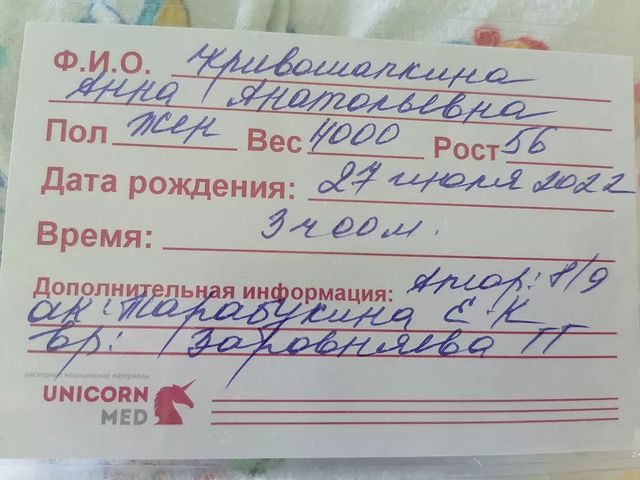 Ф.И.О. Кривошапкина
Анна Анатольевна
Пол жен Вес 4000 Рост 56
Дата рождения: 27 июля 2022
Время: 3 ч 00 м.
Дополнительная информация: Апгар: 8/9
ак: Тарабукина Е К
вр: Заровняева П
расходные медицинские материалы
UNICORN
MED